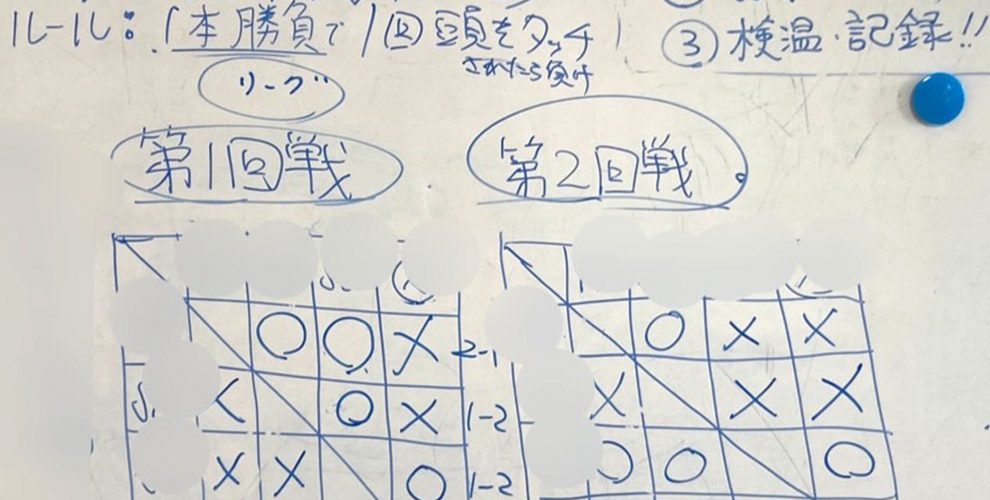 ルール：1本勝負で1回頭をタッチ
されたら負け
③検温・記録!!
リーグ
第1回戦
第2回戦
○ ○ × 2-1
× ○ × 1-2
× × ○ 1-2
○ × ×
× × ×
○ ○ ○